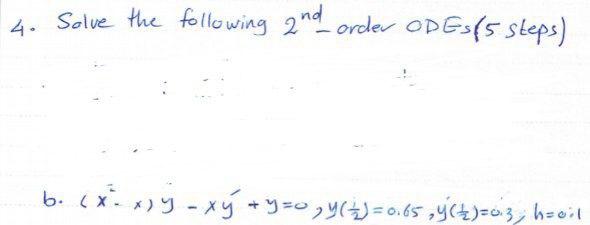 4. Solve the following 2nd-order ODEs (5 steps)
b. (x² - x) ÿ - xy' + y = 0, y(½) = 0.65, y'(½) = 0.3, h = 0.1